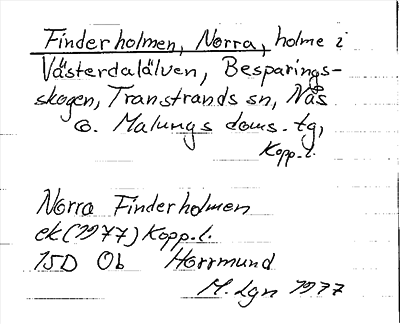 Finderholmen, Norra, holme i
Västerdalälven, Besparings-
skogen, Transtrands sn, Nås
o. Malungs doms. tg,
Kopp. l.
Norra Finderholmen
ek (1977) Kopp. l.
15D 0b Horrmund
M. Lgn 1977